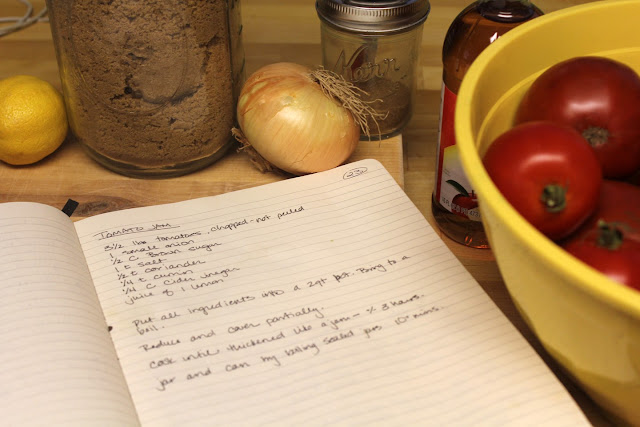 230
TOMATO JAM
3 1/2 lbs tomatoes, chopped - not peeled
1 small onion
1/2 C Brown Sugar
1 t salt
1/2 t coriander
1/4 t cumin
1/4 C cider vinegar
juice of 1 lemon
Put all ingredients into a 2qt pot. Bring to a
boil.
Reduce and cover partially.
Cook until thickened like a jam - 3 hours.
jar and can by boiling sealed jars 10 mins.
Mason